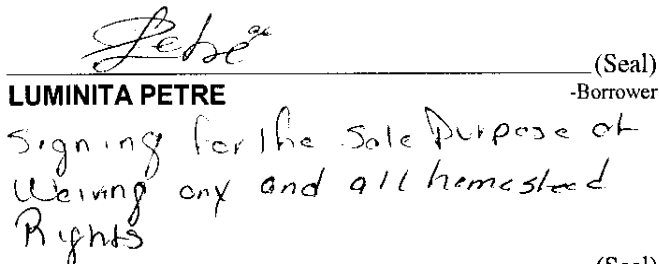 Petre
(Seal)
LUMINITA PETRE
-Borrower
Signing for the Sole Purpose of
Waiving any and all homestead
Rights
(Seal)